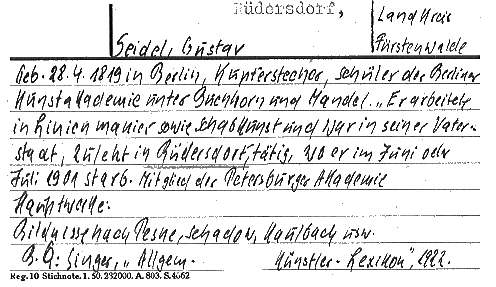 Rüdersdorf,
Landkreis
Fürstenwalde
Seidel, Gustav
Geb. 28.4.1819 in Berlin, Kupferstecher, schüler der Berliner
Kunstakademie unter Buchhorn und Mandel. „Er arbeitete
in Linienmanier sowie schabkunst und war in seiner Vater-
stadt, zuletzt in Rüdersdorf, tätig, wo er im Juni oder
Juli 1901 starb. Mitglied der Petersburger Akademie
Hauptwerke:
Bildnisse nach Pesne, schadow, Kaulbach usw.
B.Q: Singer, „Allgem. Künstler-Lexikon", 1922.
Reg. 10 Stichnote. 1. 50. 232000. A. 803. S. 4662